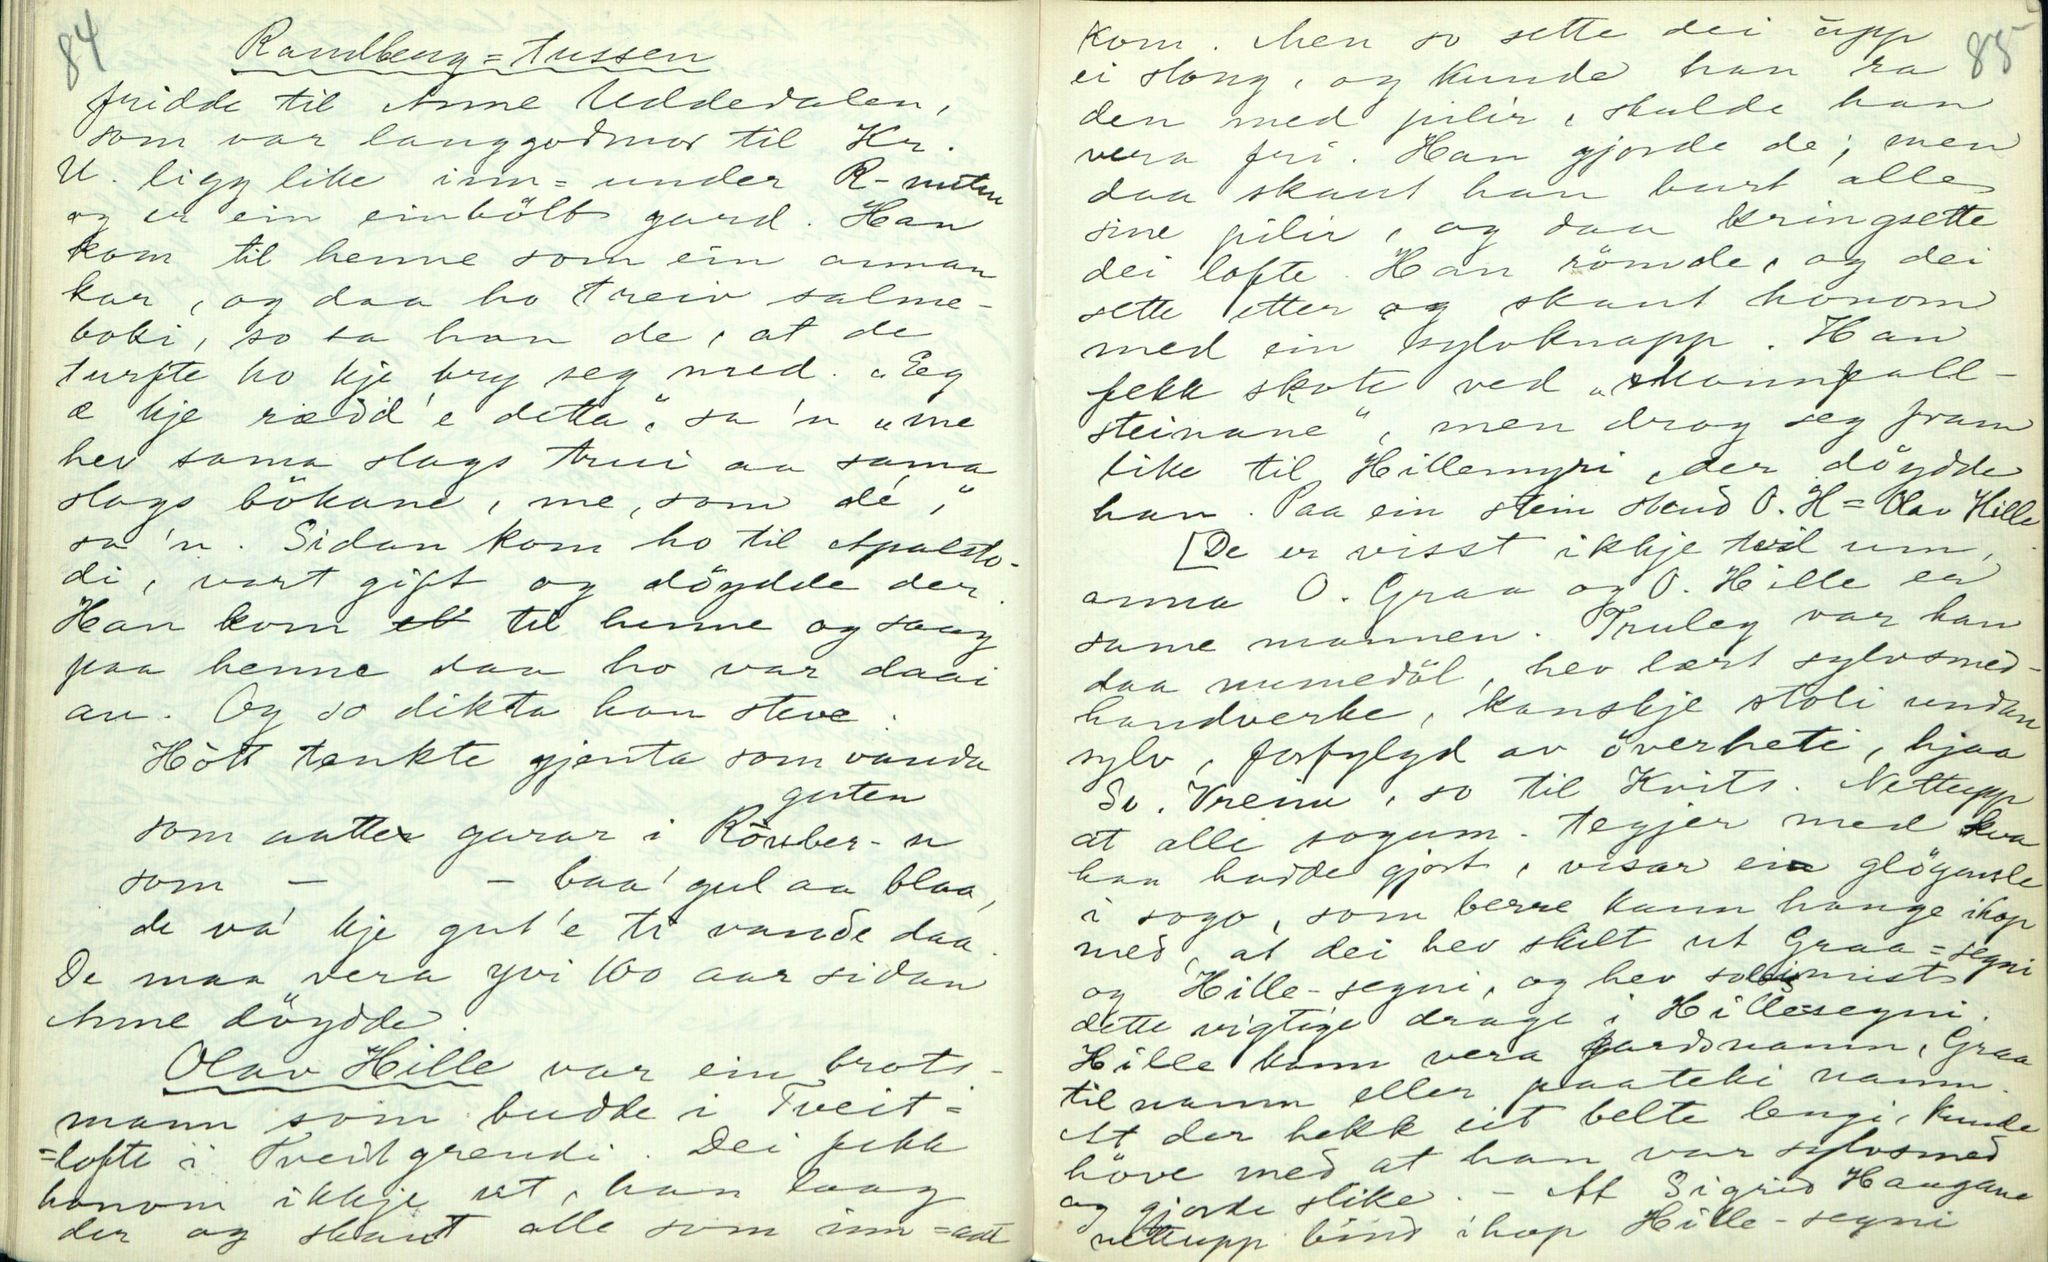 84
Raudberg=tussen
fridde til Anne Uddedalen,
som var langgodmor til Kr.
U. ligg like inn=under R-nuten
og er ein einbölt gard. Han
kom til henne som ein annan
kar, og daa ho treiv salme-
boki, so sa han de, at de
turfte ho kje bry seg med. „Eg
æ kje rædd'e detta“, sa 'n „me
hev sama slags trui aa sama
slags bökane, me, som dé“,
sa 'n. Sidan kom ho til Apalsto-
di, vart gift og döydde der.
Han kom til henne og saag
paa henne daa ho var daai
au. Og so dikta han steve.
Hött tenkte gjenta som vanda
guten
som aatte garar i Röuber-n
som - - baa' gul aa blaa,
de va' kje gut'e ti vande daa.
De maa vera yvi 100 aar sidan
Anne döydde.
Olav Hille var ein brots-
mann som budde i Tveit=
=lofte i Tveitgrendi. Dei fekk
honom ikkje ut, han laag
der og skaut alle som inn=aat
85
kom. Men so sette dei upp
ei stong, og kunde han ra
den med pilir, skulde han
vera fri. Han gjorde de; men
daa skaut han burt alle
sine pilir, og daa kringsette
dei lofte. Han römde, og dei
sette etter og skaut honom
med ein sylvknapp. Han
fekk skote ved „Mannfall-
steinane“, men drog seg fram
like til Hillemyri, der döydde
han. Paa ein stein stend O. H = Olav Hille.
[De er visst ikkje tvil um,
anna O. Graa og O. Hille er
same mannen. Truleg var han
daa numedöl, hev lært sylvsmed-
handverke, kanskje stoli undan
sylv, forfylgd av överheti, hjaa
So. Vreim, so til Kvits. Nettupp
at alli sogum. tegjer med kva
han hadde gjort, visar ein glöymsle
i sogo, som berre kann hange ihop
med, at dei hev skilt ut Graa=segni
og Hille-segni, og hev so mist
dette vigtige drage i Hille=segni.
Hille kann vera gardsnamn, Graa
tilnamn eller paateki namn.
At der hekk eit belte lengi, kunde
höve med at han var sylvsmed
og gjorde slike. - At Sigrid Haugane
nettupp bind ihop Hille-segni